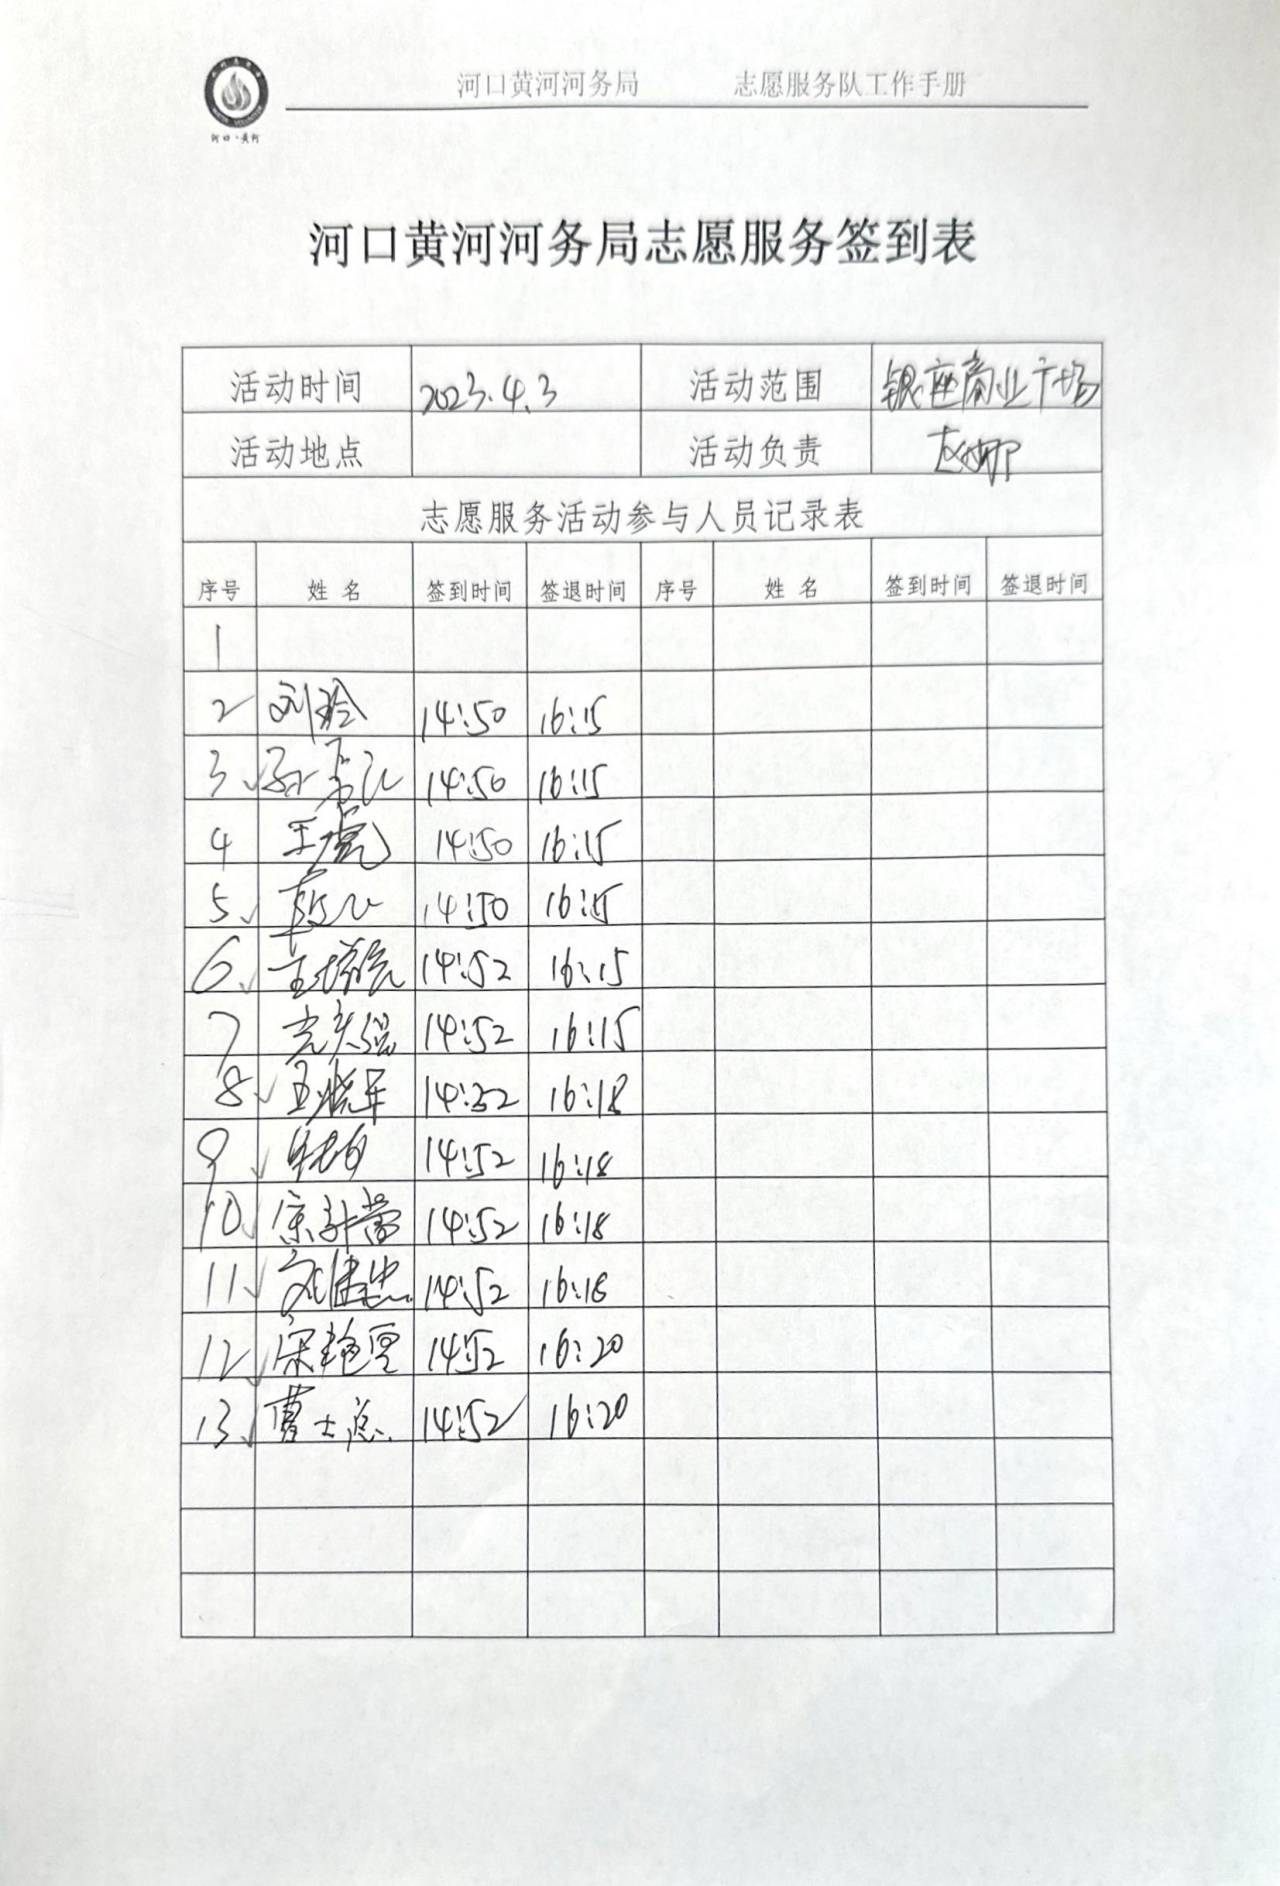 河口黄河河务局 志愿服务队工作手册
河口·黄河
河口黄河河务局志愿服务签到表
活动时间 2023.4.3 活动范围 银座商业广场
活动地点 活动负责 赵娜
志愿服务活动参与人员记录表
序号 姓名 签到时间 签退时间 序号 姓名 签到时间 签退时间
1
2 刘玲 14:50 16:15
3 14:50 16:15
4 王虎 14:50 16:15
5 14:50 16:15
6 14:52 16:15
7 14:52 16:15
8 王晓军 14:52 16:18
9 14:52 16:18
10 14:52 16:18
11 14:52 16:18
12 宋艳丽 14:52 16:20
13 曹士 14:52 16:20